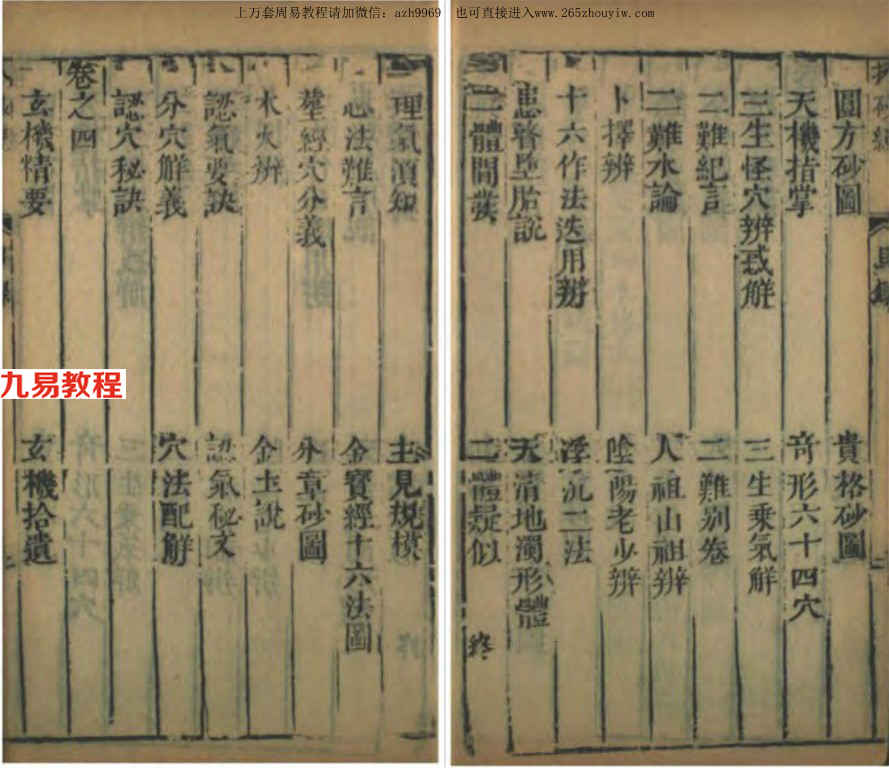 上万套周易教程请加微信：azh9969 也可直接进入www.265zhouyiw.com
圓方砂圖 貴格砂圖
天機指掌 奇形六十四穴
三生怪穴辨惑解 三生乘氣解
二難紀言 二難別卷
二難水論 人祖山祖辨
卜擇辨 陰陽老少辨
十六作法迭用辨 浮沉二法
天清地濁形體
二體疑似 終
理氣須知 主見規模
心法難言 金寶經十六法圖
葬經穴分義 分章砂圖
水火辨 金土說
認氣要訣 認氣秘文
分穴解義 穴法配解
認穴秘訣
卷之四
玄機精要 玄機拾遺
九易教程